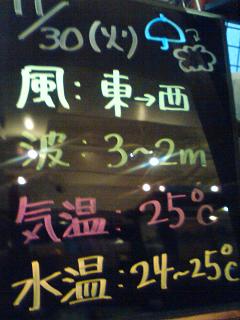 11/30(火)
風:東→西
波:3~2m
気温:25℃
水温:24~25℃